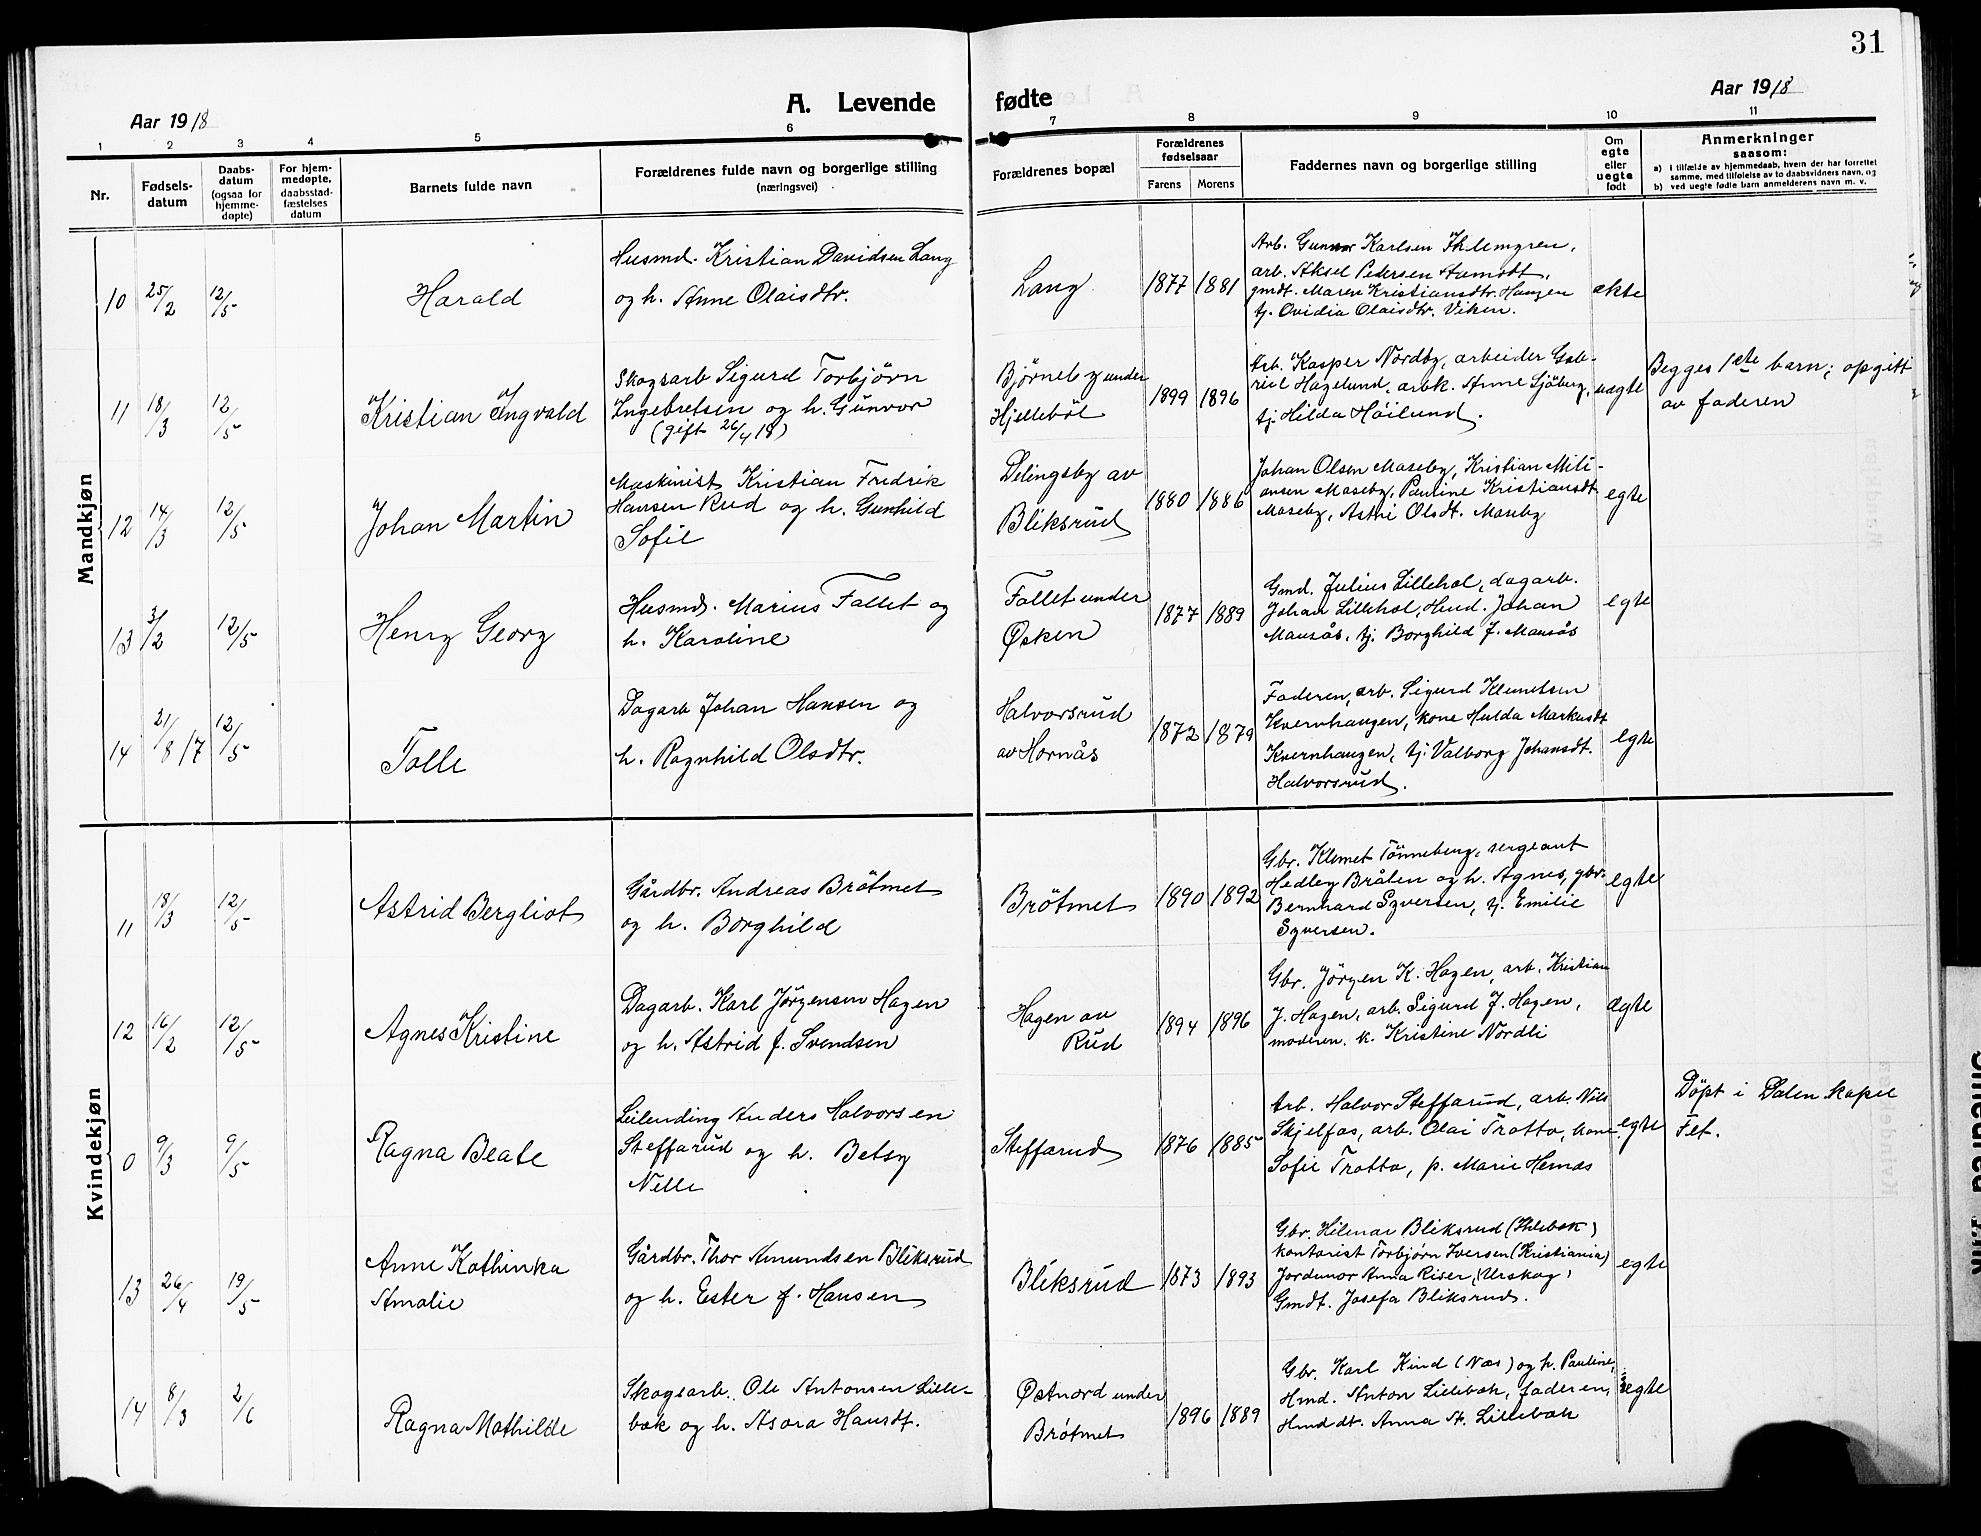 31
A. Levende fødte
Aar 1918
Aar 1918
1 2 3 4 5 6 7 8 9 10 11
Nr.
Fødsels-
datum
Daabs-
datum
(ogsaa for
hjemme-
døpte)
For hjem-
medøpte,
daabsstad-
fæstelses
datum
Barnets fulde navn
Forældrenes fulde navn og borgerlige stilling
(næringsvei)
Forældrenes bopæl
Forældrenes
fødselsaar
Farens Morens
Faddernes navn og borgerlige stilling
Om
egte
eller
uegte
født
Anmerkninger
saasom:
a) i tilfælde av hjemmedaab, hvem der har forrettet
samme, med tilføielse av to daabsvidners navn, og
b) ved uegte fødte barn anmelderens navn m. v.
Mandkjøn
10 25/2 12/5 Harald
Husmd. Kristian Davidsen Lang
og h. Anne Olaisdtr.
Lang 1877 1881
Arb. Gunnar Karlsen
arb. Aksel Pedersen
gmdt. Maren Kristiansdtr. Haugen
tj. Ovidia Olaisdtr. Viken.
ekte
11 18/3 12/5 Kristian Ingvald
Skogsarb Sigurd Torbjørn
Ingebretsen og h. Gunvor
(gift 26/4 18)
Bjørneby under
Hjellebøl
1899 1896
Arb. Kasper Nordby, arbeider Gab-
riel Hagelund, arbk. Anne Sjöberg,
tj. Hilda Höilund.
uægte
Begges 1ste barn; opgitt
av faderen
12 14/3 12/5 Johan Martin
Maskinist Kristian Fredrik
Hansen Rud og h. Gunhild
Sofie
Delingsby av
Bliksrud
1880 1886
Johan Olsen Moseby, Kristian Mili-
ansen Moseby, Pauline Kristiansdt.
Moseby, Astri Olsdt. Moseby
egte
13 3/2 12/5 Henry Georg
Husmd. Marius Fallet og
h. Karoline
Fallet under
Øsken
1877 1889
Gmd. Julius Lillehol, dagarb.
Johan Lillehol, Hmd. Johan
Mausås, tj. Borghild J. Mausås
egte
14 21/8 17 12/5 Tolle
Dagarb Johan Hansen og
h. Ragnhild Olsdtr.
Halvorsrud
av Hornås
1872 1879
Faderen, arb. Sigurd Klemetsen
Kvernhaugen, kone Hulda Markusdt
Kvernhaugen, tj. Valborg Johansdt.
Halvorsrud.
egte
Kvindekjøn
11 18/3 12/5 Astrid Bergliot
Gårdbr. Andreas Brötmet
og h. Borghild
Brötmet 1890 1892
Gbr. Klemet Tönneberg, sergeant
Hedley Bråten og h. Agnes, gbr.
Bernhard Syversen, tj. Emilie
Syversen.
egte
12 16/2 12/5 Agnes Kristine
Dagarb. Karl Jörgensen Hagen
og h. Astrid f. Svendsen
Hagen av
Rud
1894 1896
Gbr. Jörgen K. Hagen, arb. Kristian
J. Hagen, arb. Sigurd J. Hagen,
moderen. k. Kristine Nordli
ægte
0 9/3 9/5 Ragna Beate
Leilending Anders Halvorsen
Steffarud og h. Betsy
Nelle
Steffarud 1876 1885
Arb. Halvor Steffarud, arb. Nils
Skjelfos, arb. Olai Tratto, kone
Sofie Tratto, p. Marie Hemæs
egte
Döpt i Dalen kapel
Fet.
13 26/4 19/5 Anne Kathinka
Amalie
Gårdbr. Thor Amundsen Bliksrud
og h. Ester f. Hansen
Bliksrud 1873 1893
Gbr. Hilmar Bliksrud (Ihlebæk)
kontorist Torbjørn Iversen (Kristiania)
Jordmor Anna Riser (Urskog)
Gmdt. Josefa Bliksrud.
egte
14 8/3 2/6 Ragna Mathilde
Skogsarb. Ole Antonsen Lille-
bæk og h. Asora Hansdt.
Østnord under
Brötmet
1896 1889
Gbr. Karl Kind (Næs) og h. Pauline,
Hmd. Anton Lillebæk, faderen,
Hmddt. Anna A. Lillebæk
egte